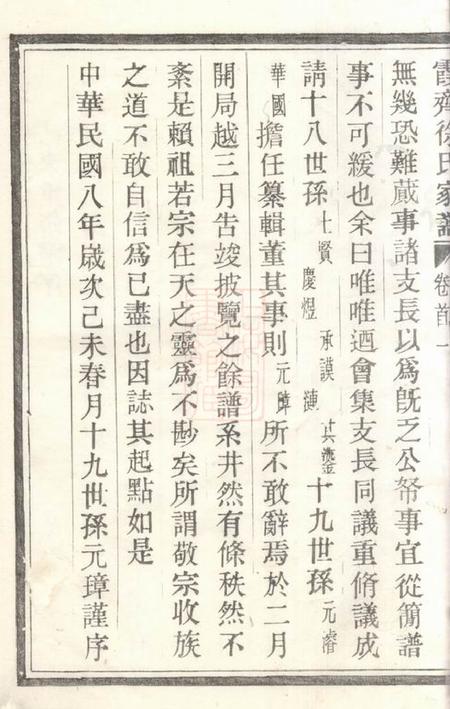 霞齊徐氏家譜 卷首 一
無幾恐難蕆事諸支長以爲旣乏公帑事宜從簡譜
事不可緩也余曰唯唯迺會集支長同議重脩議成
請十八世孫士賢 慶煜 承謨 漣 其鎏十九世孫元濬
華國擔任纂輯董其事則元暐所不敢辭焉於二月
開局越三月告竣披覽之餘譜系井然有條秩然不
紊是賴祖若宗在天之靈爲不尠矣所謂敬宗收族
之道不敢自信爲已盡也因誌其起點如是
中華民國八年歲次己未春月十九世孫元璋謹序